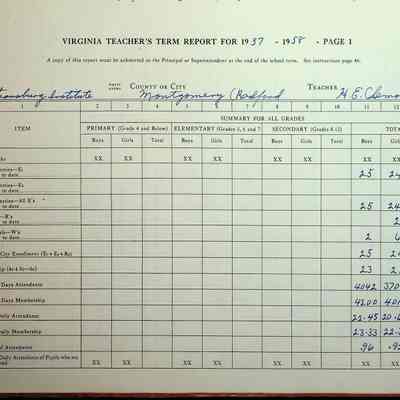 VIRGINIA TEACHER'S TERM REPORT FOR 1937 - 1958 - PAGE 1
A copy of this report must be submitted to the Principal or Superintendent at the end of the school term. See instructions page 46.
Institute COUNTY OR CITY Montgomery (Radford TEACHER H. E. Clemo
1 2 3 4 5 6 7 8 9 10 11 12
SUMMARY FOR ALL GRADES
ITEM PRIMARY (Grade 4 and Below) ELEMENTARY (Grades 5, 6 and 7 SECONDARY (Grades 8-12) TOTA
Boys Girls Total Boys Girls Total Boys Girls Total Boys Gir
XX XX XX XX XX XX
ntries—E1
to date 25 2
ntries—E2
to date
ntries—All E's
to date 25 24
—R's
to date 2
als—W's
to date 2 6
City Enrollment (E1+E2+R2) 25 2
ip 23 2
Days Attendance 4042 370
Days Membership 4200 401
Daily Attendance 22.45 20.
Daily Membership 23.33 22.
of Attendance .96 .9
Daily Attendance of Pupils who are XX XX XX XX XX XX